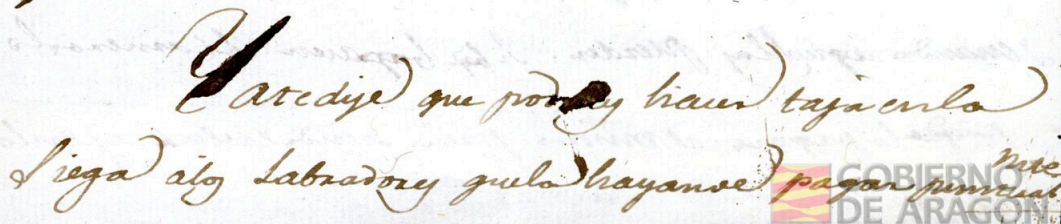 Ya te dije que podeis hacer tasa en la
siega á los Labradores que la hayan de pagar
GOBIERNO
DE ARAGON